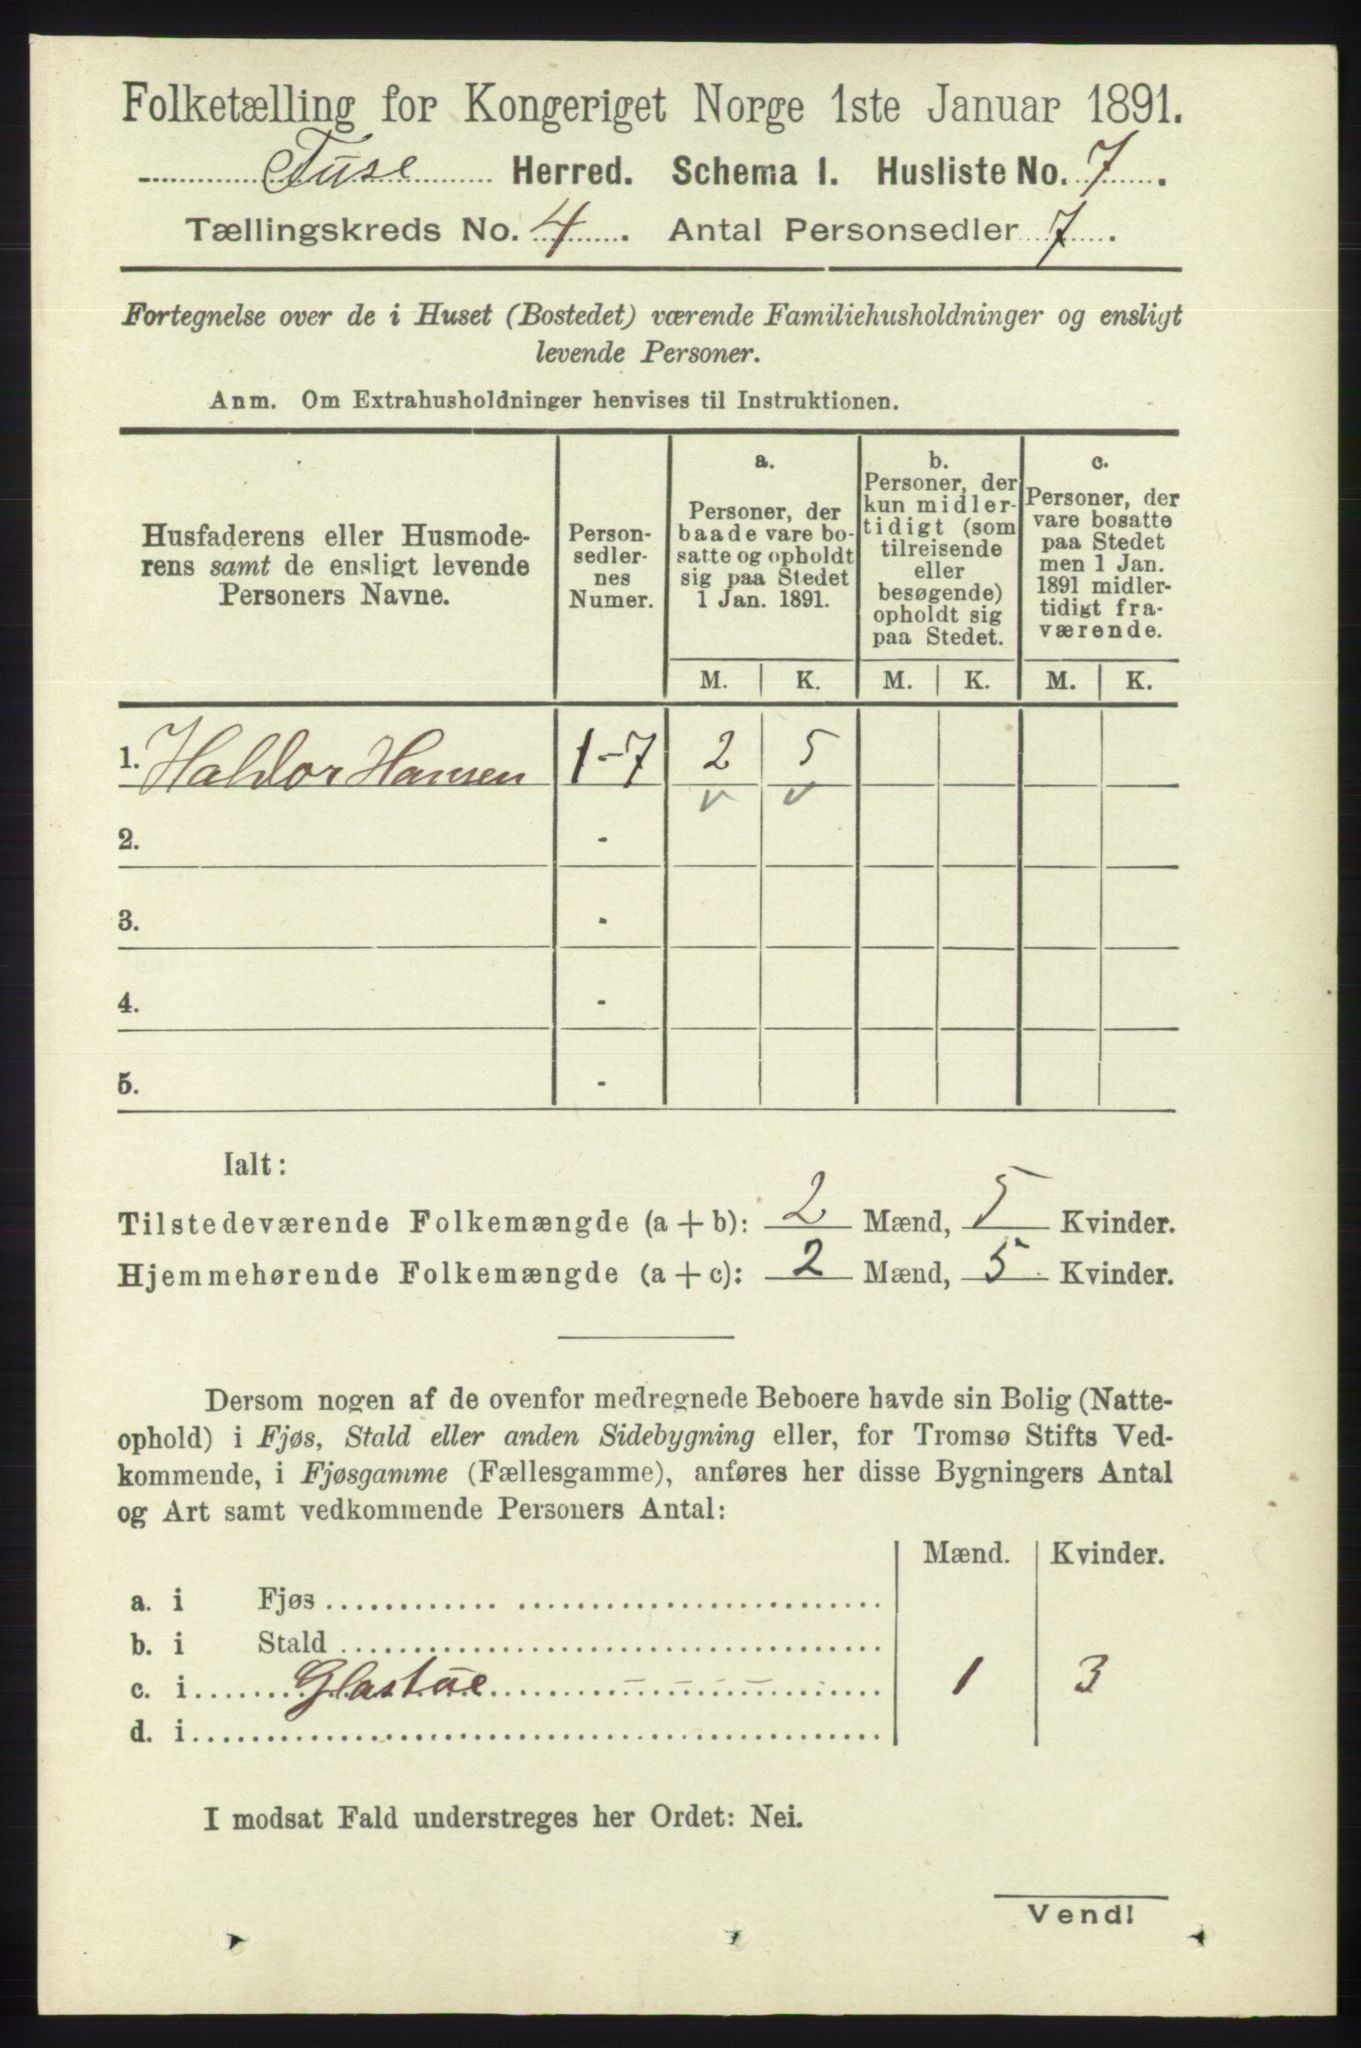 Folketælling for Kongeriget Norge 1ste Januar 1891.
Fuse Herred. Schema 1. Husliste No. 7.
Tællingskreds No. 4. Antal Personsedler 7.
Fortegnelse over de i Huset (Bostedet) værende Familiehusholdninger og ensligt
levende Personer.
Anm. Om Extrahusholdninger henvises til Instruktionen.
Husfaderens eller Husmode-
rens samt de ensligt levende
Personers Navne.
Person-
sedler-
nes
Numer.
a.
Personer, der
baade vare bo-
satte og opholdt
sig paa Stedet
1 Jan. 1891.
b.
Personer, der
kun midler-
tidigt (som
tilreisende
eller
besøgende)
opholdt sig
paa Stedet.
c.
Personer, der
vare bosatte
paa Stedet
men 1 Jan.
1891 midler-
tidigt fra-
værende.
M. K. M. K. M. K.
1. Haldor Hansen 1-7 2 5
v v
2. -
3. -
4. -
5. -
Ialt:
Tilstedeværende Folkemængde (a + b): 2 Mænd, 5 Kvinder.
Hjemmehørende Folkemængde (a + c): 2 Mænd, 5 Kvinder.
Dersom nogen af de ovenfor medregnede Beboere havde sin Bolig (Natte-
ophold) i Fjøs, Stald eller anden Sidebygning eller, for Tromsø Stifts Ved-
kommende, i Fjøsgamme (Fællesgamme), anføres her disse Bygningers Antal
og Art samt vedkommende Personers Antal:
Mænd. Kvinder.
a. i Fjøs
b. i Stald
c. i Glastue 1 3
d. i
I modsat Fald understreges her Ordet: Nei.
Vend!